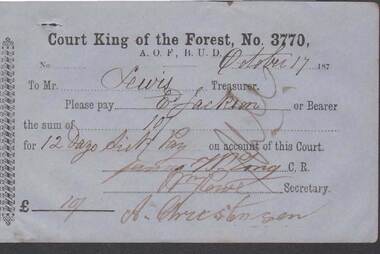 Court King of the Forest, No. 3770,
A. O. F., B. U. D.
No October 17 187
To Mr. Lewis Treasurer.
Please pay E Jackson or Bearer
the sum of 10/
for 12 Days Sick Pay on account of this Court.
C. R.
Secretary.
£ 10/